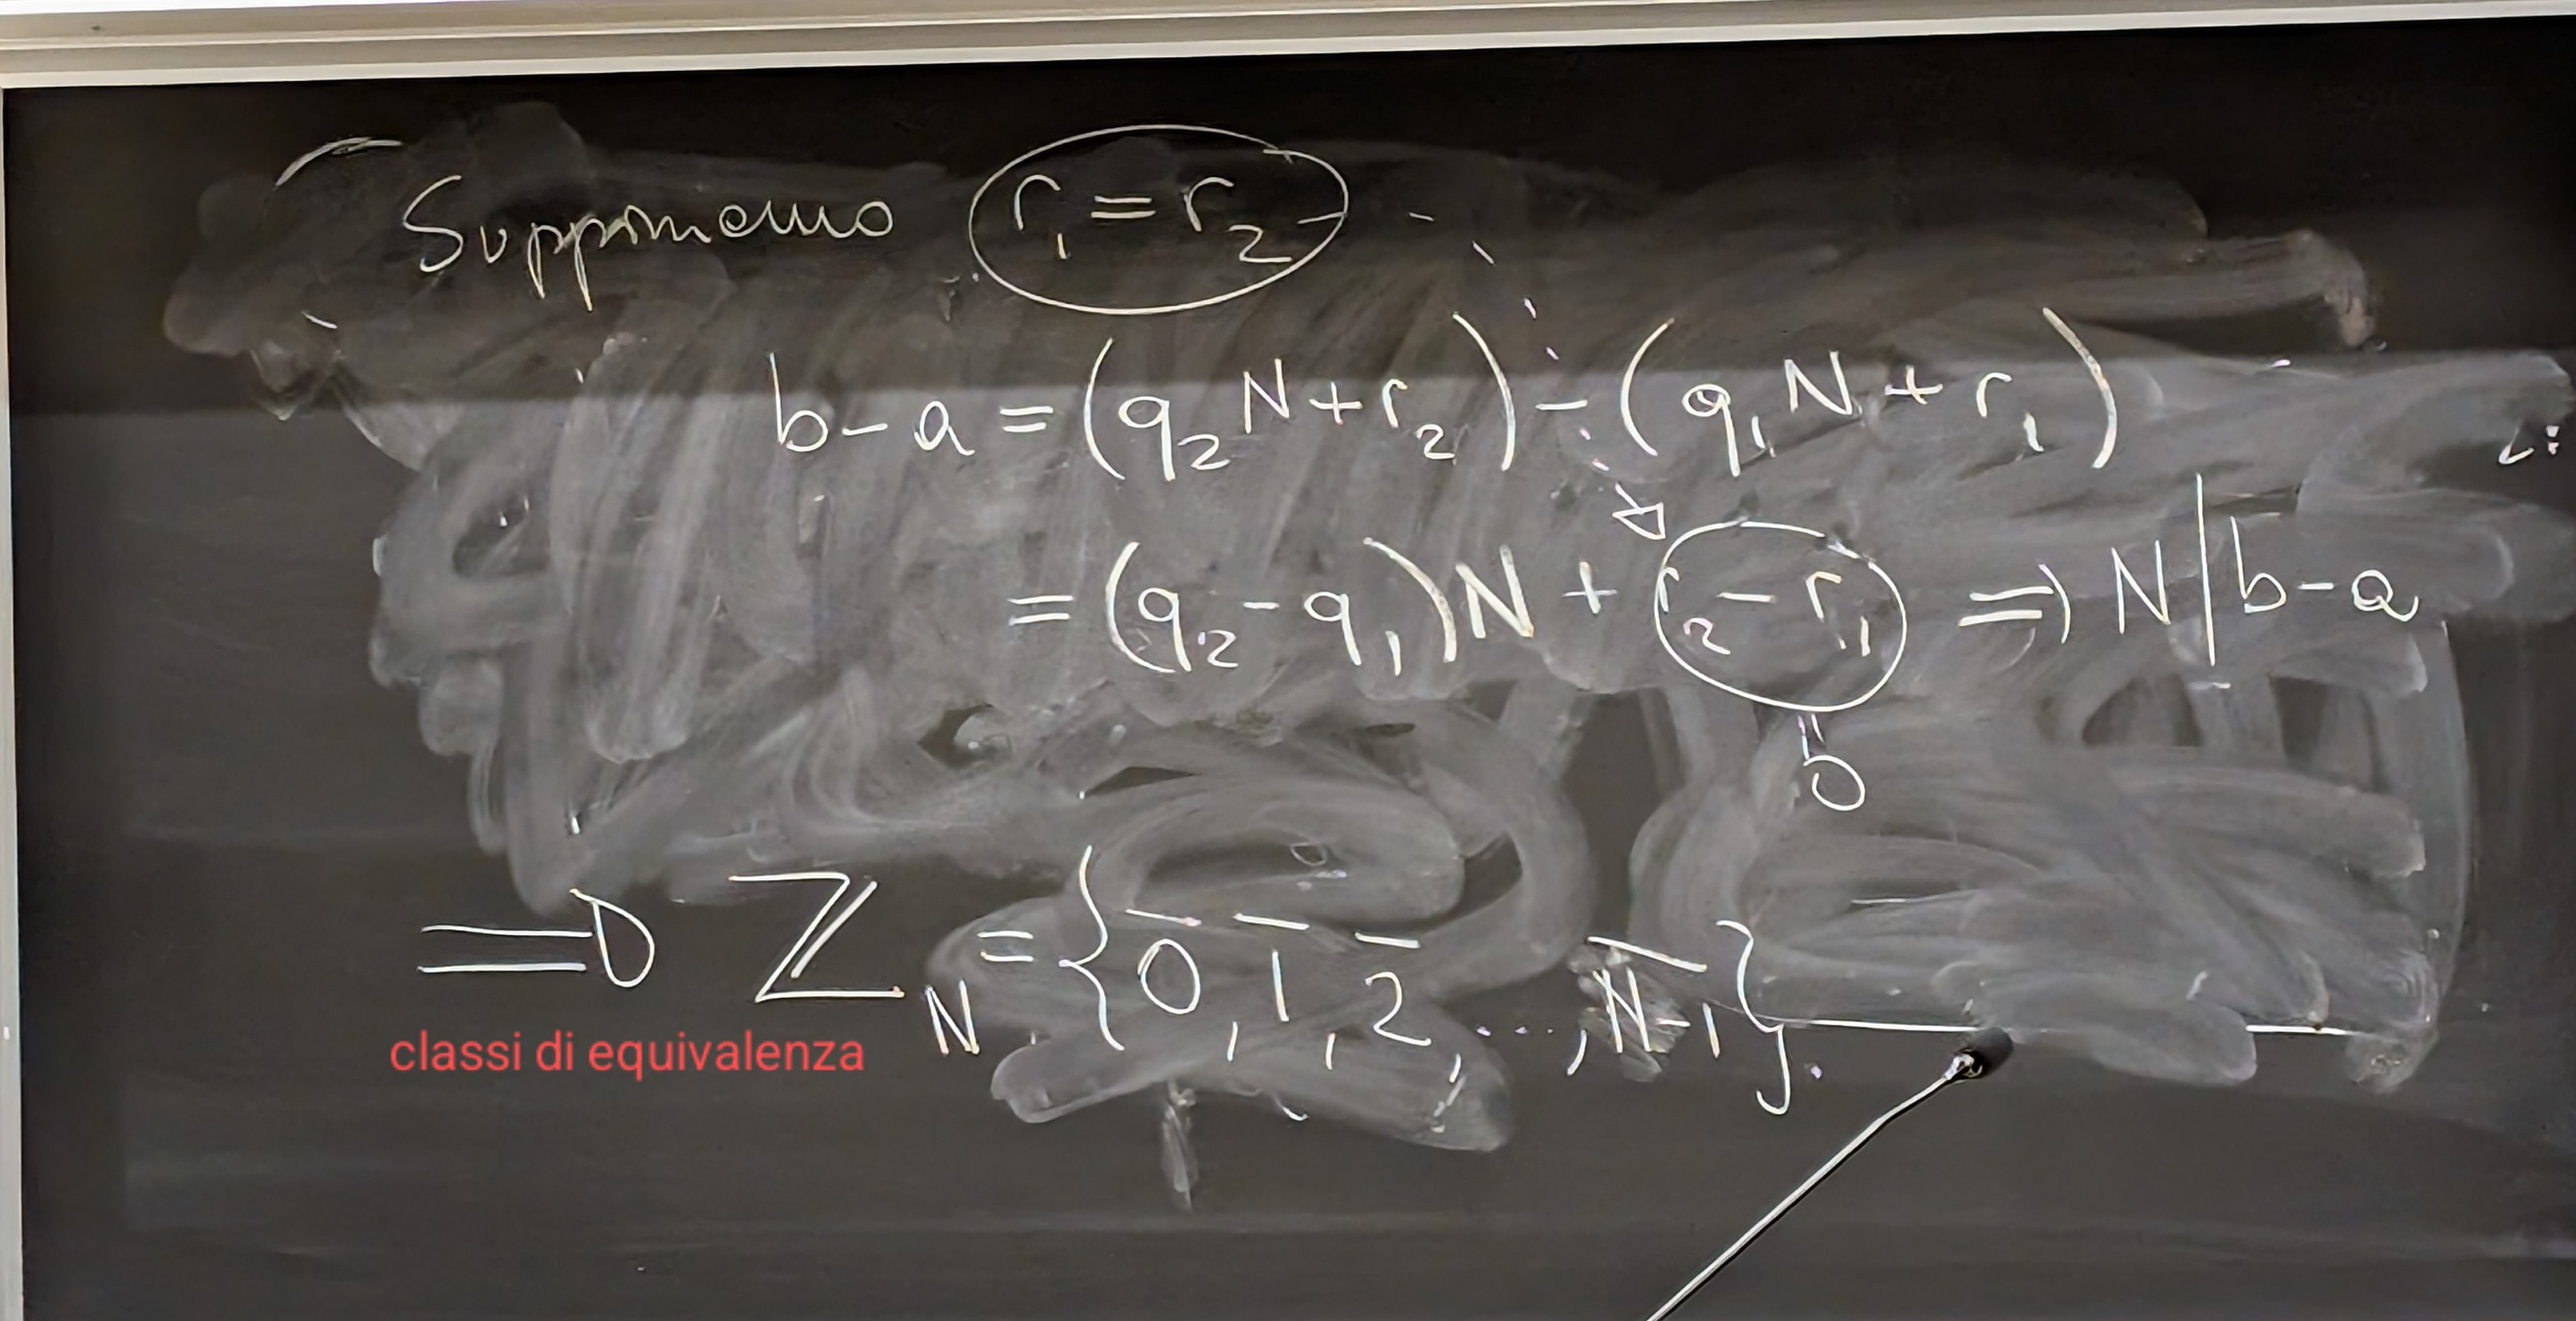 Supponiamo r₁ = r₂
b - a = (q₂N + r₂) - (q₁N + r₁)
= (q₂ - q₁)N + r₂ - r₁ ⇒ N | b - a
= 0
⇒ ℤ_N = {0̅, 1̅, 2̅, ..., N̅-̅1̅}.
classi di equivalenza